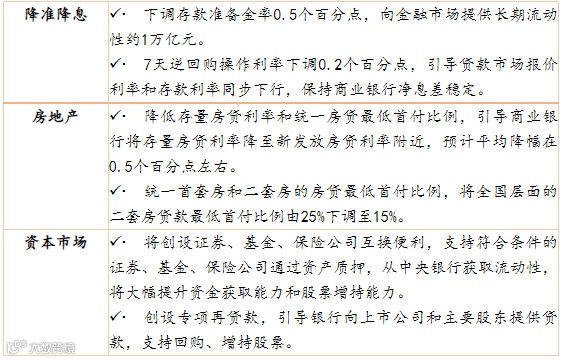 降准降息
✓· 下调存款准备金率0.5个百分点，向金融市场提供长期流动
性约1万亿元。
✓· 7天逆回购操作利率下调0.2个百分点，引导贷款市场报价
利率和存款利率同步下行，保持商业银行净息差稳定。
房地产
✓· 降低存量房贷利率和统一房贷最低首付比例，引导商业银
行将存量房贷利率降至新发放房贷利率附近，预计平均降幅在
0.5个百分点左右。
✓· 统一首套房和二套房的房贷最低首付比例，将全国层面的
二套房贷款最低首付比例由25%下调至15%。
资本市场
✓· 将创设证券、基金、保险公司互换便利，支持符合条件的
证券、基金、保险公司通过资产质押，从中央银行获取流动性，
将大幅提升资金获取能力和股票增持能力。
✓· 创设专项再贷款，引导银行向上市公司和主要股东提供贷
款，支持回购、增持股票。
大数跨境